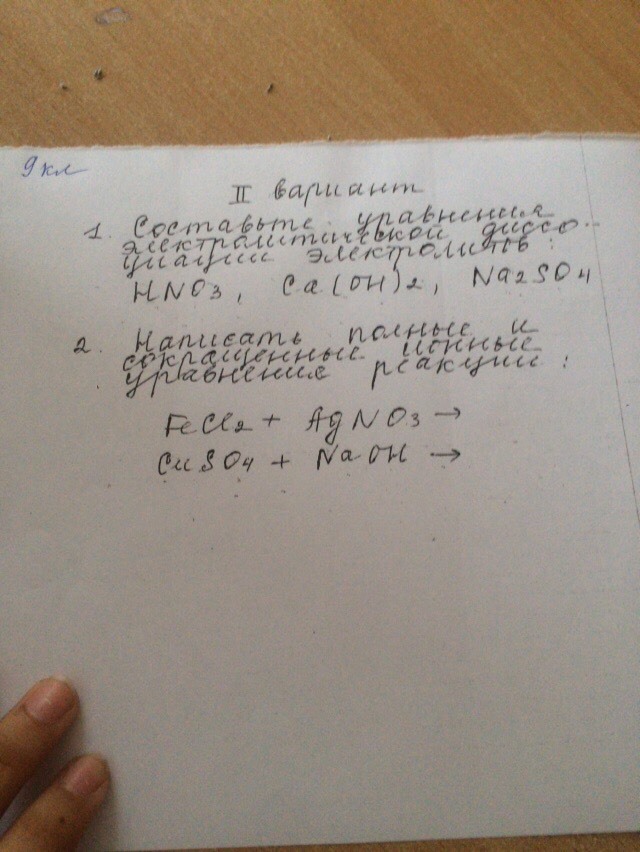 9 кл
II вариант
1. Составьте уравнения
электролитической диссо-
циации электролитов:
HNO3, Ca(OH)2, Na2SO4
2. Написать полные и
сокращенные ионные
уравнения реакции:
FeCl2 + AgNO3 →
CuSO4 + NaOH →